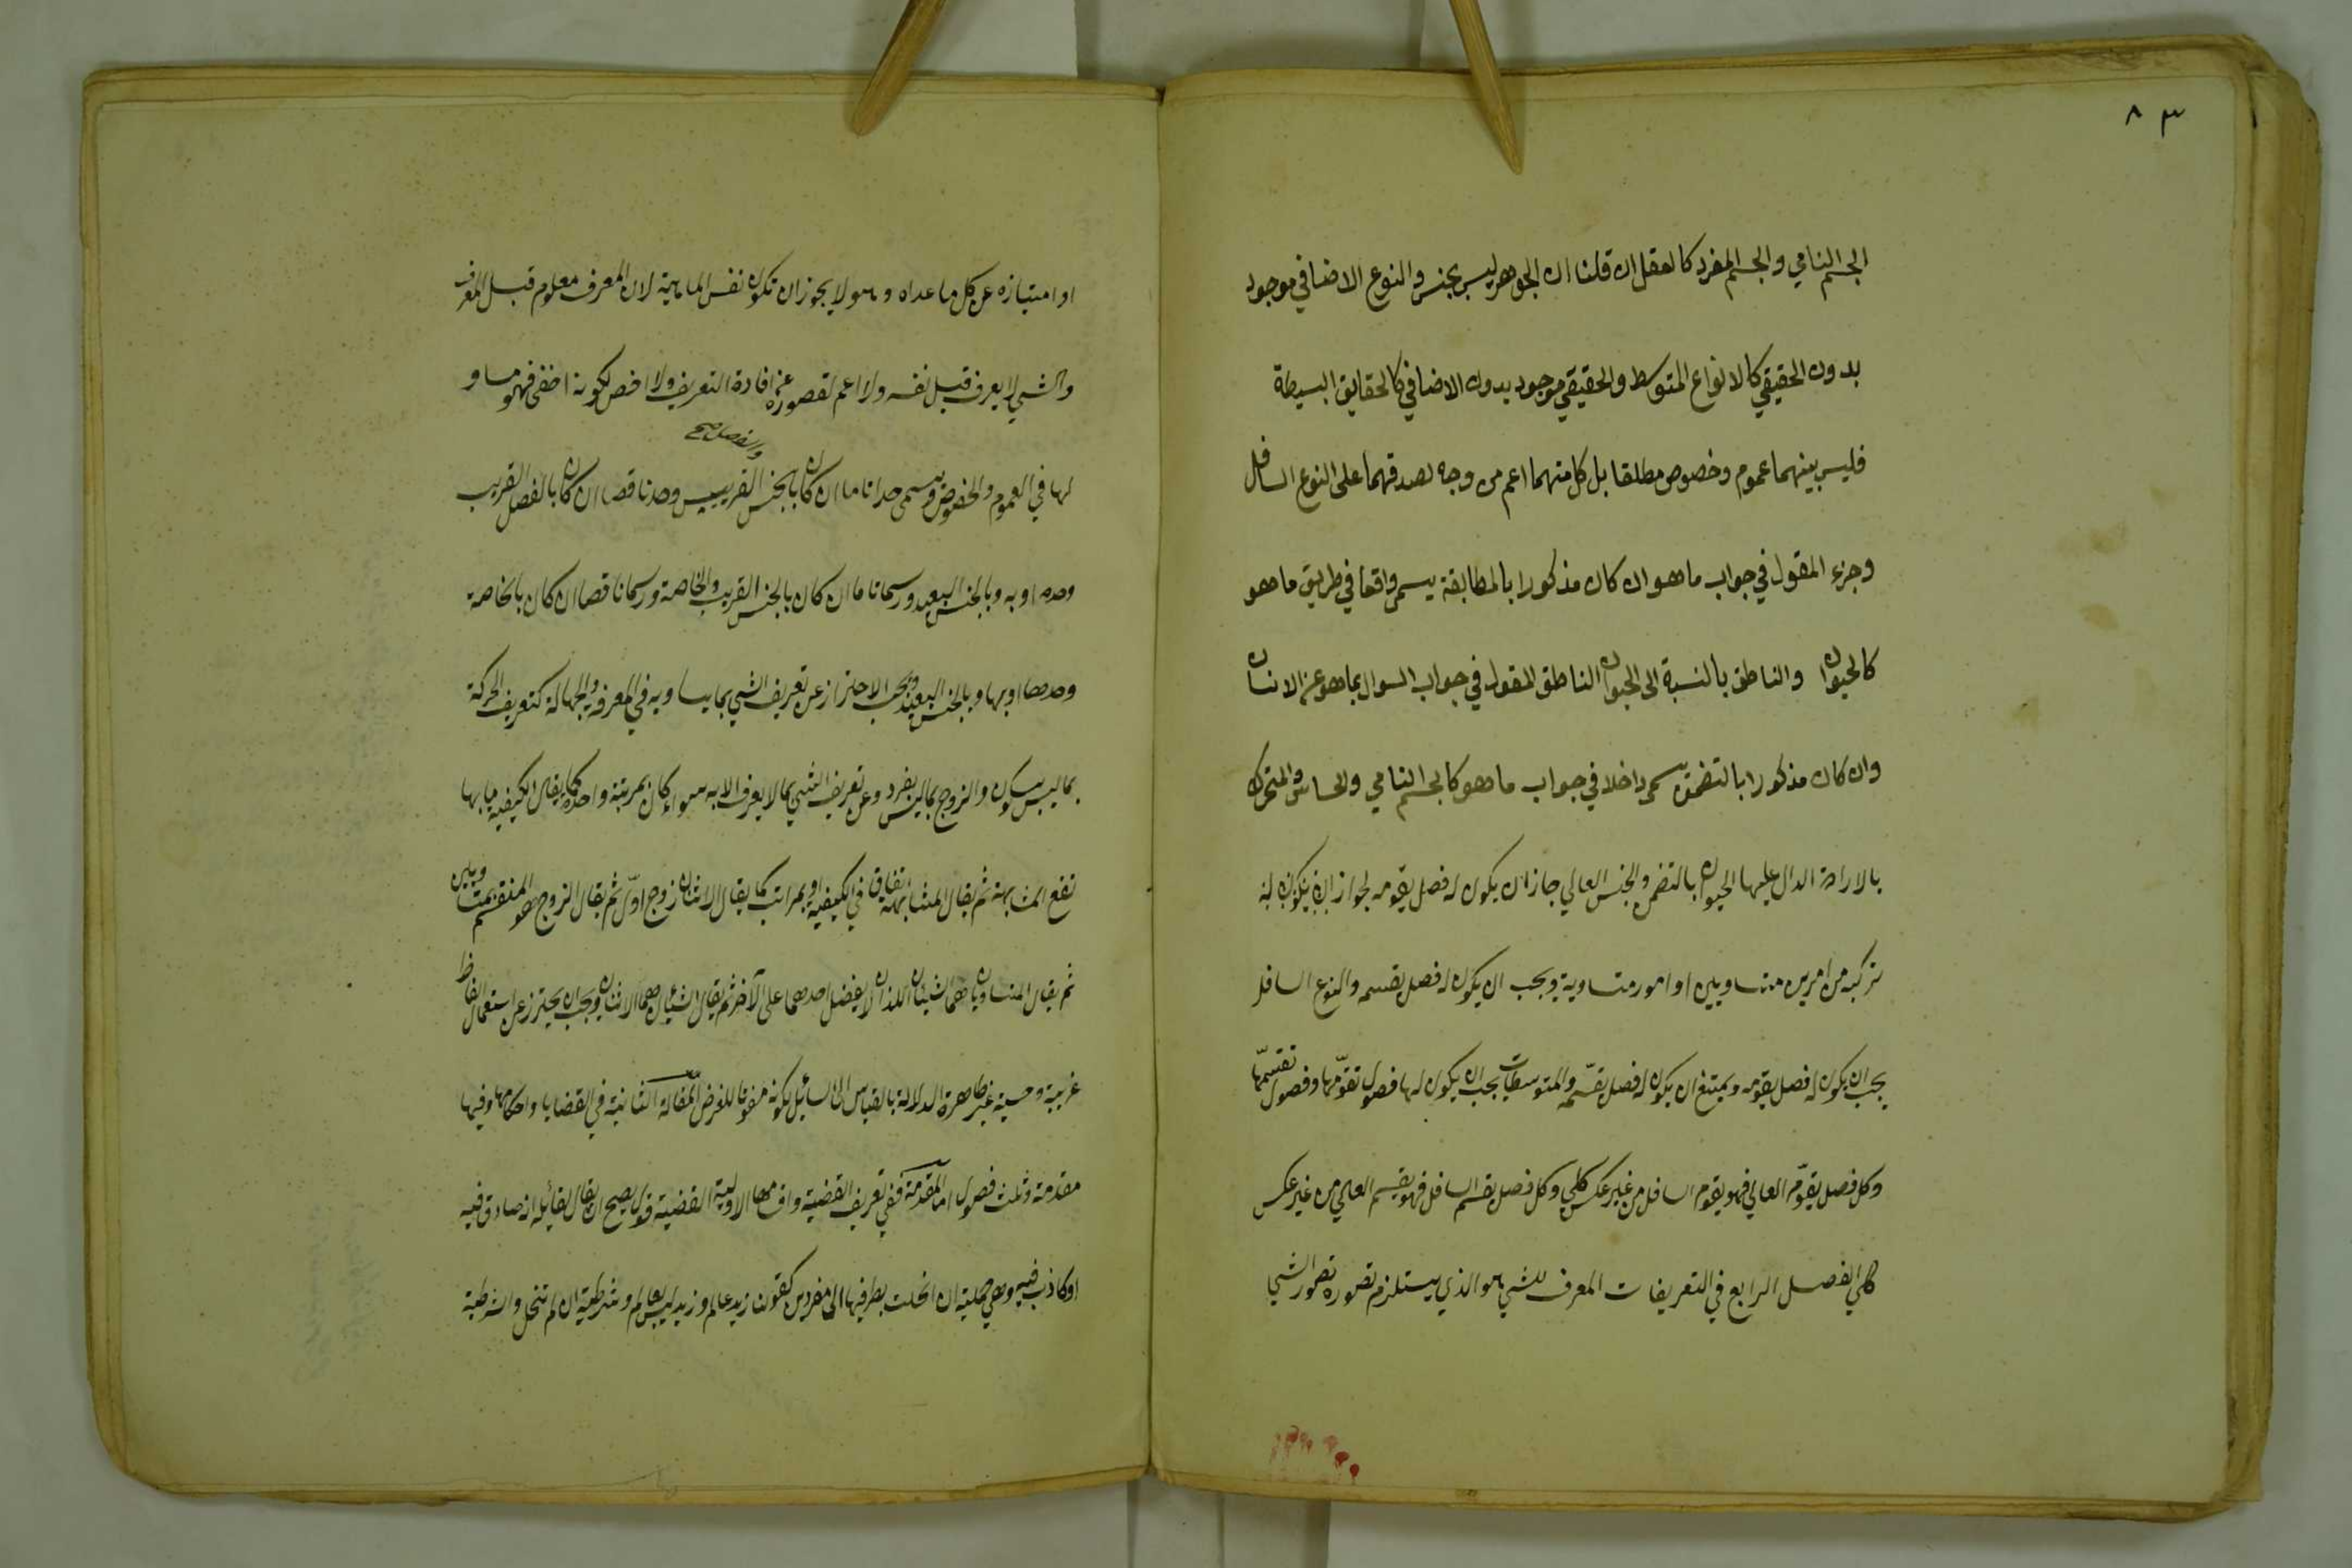 ٨٣
الجسم النامي والجسم المفرد كالعقل ان قلنا ان الجوهر ليس بجنس والنوع الاضافي موجود
بدون الحقيقي كالانواع المتوسط والحقيقي موجود بدون الاضافي كالحقايق البسيطة
فليس بينهما عموم وخصوص مطلقا بل كل منهما اعم من وجه لصدقهما على النوع السافل
وجزء المقول في جواب ما هو ان كان مذكورا بالمطابقة يسمى واقعا في طريق ما هو
كالحيوان والناطق بالنسبة الى الحيوان الناطق المقول في جواب السوال بما هو عن الانسان
وان كان مذكورا بالتضمن يسمى داخلا في جواب ما هو كالجسم النامي والحساس والمتحرك
بالارادة الدال عليها الحيوان بالتضمن والجنس العالي جاز ان يكون له فصل يقومه لجواز
تركبه من امرين متساويين او امور متساوية ويجب ان يكون له فصل يقسمه والنوع السافل
يجب ان يكون له فصل يقومه ويمتنع ان يكون له فصل يقسّمه والمتوسطات يجب ان يكون لها فصول تقوّمها وفصول تقسّمها
وكل فصل يقوّم العالي فهو يقوم السافل من غير عكس كلي وكل فصل يقسم السافل فهو يقسم العالي من غير عكس
كلي الفصل الرابع في التعريفات المعرف للشي هو الذي يستلزم تصوره تصور الشي
او امتيازه عن كل ما عداه وهو لا يجوز ان تكون نفس الماهية لان المعرف معلوم قبل المعرف
والشي لا يعرف قبل نفسه ولا اعم لقصوره عن افادة التعريف ولا اخص لكونه اخفى فهو مساو
لها في العموم والخصوص ويسمى حدا تاما ان كان بالجنس القريب والفصل صح وحدا ناقصا ان كان بالفصل القريب
وحده او به وبالجنس البعيد ورسما تاما ان كان بالجنس القريب والخاصة ورسما ناقصا ان كان بالخاصة
وحدها او بها وبالجنس البعيد ويجب الاحتراز عن تعريف الشي بما يساويه في المعرفة والجهالة كتعريف الحركة
بما ليس بسكون والزوج بما ليس بفرد وعن تعريف الشي بما لا يعرف الا به سواء كان بمرتبة واحدة كما يقال الكيفية ما بها
تقع المشابهة ثم يقال المشابهة اتفاق في الكيفية او بمراتب كما يقال الاثنان زوج اوّل ثم يقال الزوج هو المنقسم بمتساويين
ثم يقال المتساويان هما الشيئان اللذان لا يفضل احدهما على الآخر ثم يقال الشيئان هما الاثنان ويجب ان يحترز عن استعمال الفاظ
غريبة وحسية غير ظاهرة الدلالة بالقياس الى السائل لكونه مفوتا للغرض المقالة الثانية في القضايا واحكامها وفيها
مقدمة وثلث فصول اما المقدمة ففي تعريف القضية واقسامها الاولية القضية قول يصح ان يقال لقائله انه صادق فيه
او كاذب فيه وهي حملية ان انحلت بطرفيها الى مفردين كقولنا زيد عالم وزيد ليس بعالم وشرطية ان لم تنحل والشرطية